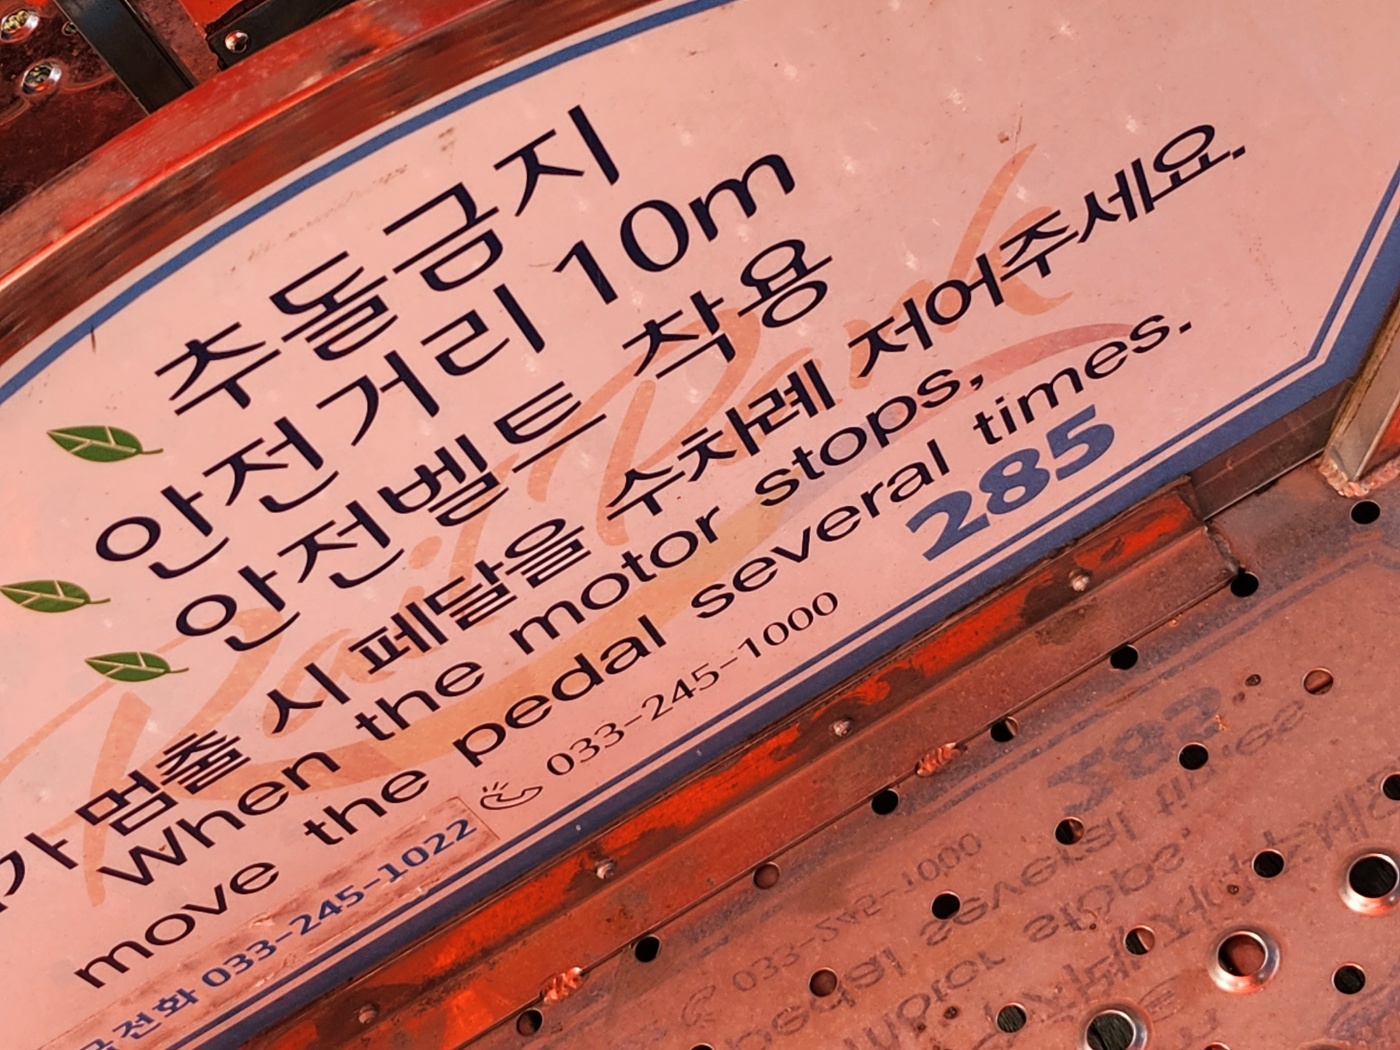 추돌금지
안전거리 10m
안전벨트 착용
가 멈출 시 페달을 수차례 저어주세요.
When the motor stops,
move the pedal several times.
285
전화 033-245-1022 033-245-1000
Rail Park